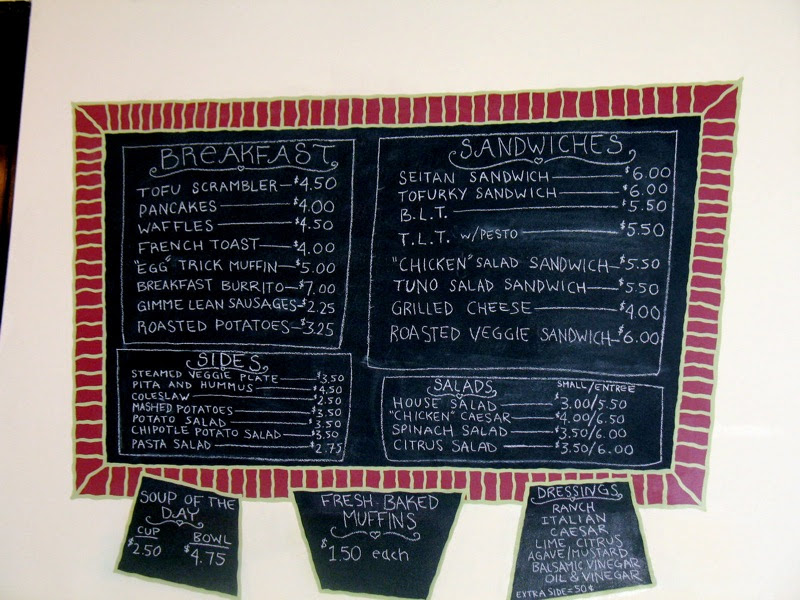 BREAKFAST
TOFU SCRAMBLER—$4.50
PANCAKES —— $4.00
WAFFLES —— $4.50
FRENCH TOAST —— $4.00
"EGG" TRICK MUFFIN—$5.00
BREAKFAST BURRITO—$7.00
GIMME LEAN SAUSAGES—$2.25
ROASTED POTATOES—$3.25
SIDES
STEAMED VEGGIE PLATE —— $3.50
PITA AND HUMMUS —— $4.50
COLESLAW —— $2.50
MASHED POTATOES —— $3.50
POTATO SALAD —— $3.50
CHIPOTLE POTATO SALAD —— $3.50
PASTA SALAD —— $2.75
SANDWICHES
SEITAN SANDWICH —— $6.00
TOFURKY SANDWICH —— $6.00
B.L.T. —— $5.50
T.L.T. W/PESTO —— $5.50
"CHICKEN" SALAD SANDWICH—$5.50
TUNO SALAD SANDWICH —— $5.50
GRILLED CHEESE —— $4.00
ROASTED VEGGIE SANDWICH—$6.00
SALADS SMALL/ENTREE
HOUSE SALAD —— $3.00/5.50
"CHICKEN" CAESAR $4.00/6.50
SPINACH SALAD —— $3.50/6.00
CITRUS SALAD —— $3.50/6.00
SOUP OF THE
DAY
CUP BOWL
$2.50 $4.75
FRESH-BAKED
MUFFINS
$1.50 each
DRESSINGS
RANCH
ITALIAN
CAESAR
LIME CITRUS
AGAVE/MUSTARD
BALSAMIC VINEGAR
OIL & VINEGAR
EXTRA SIDE=50¢